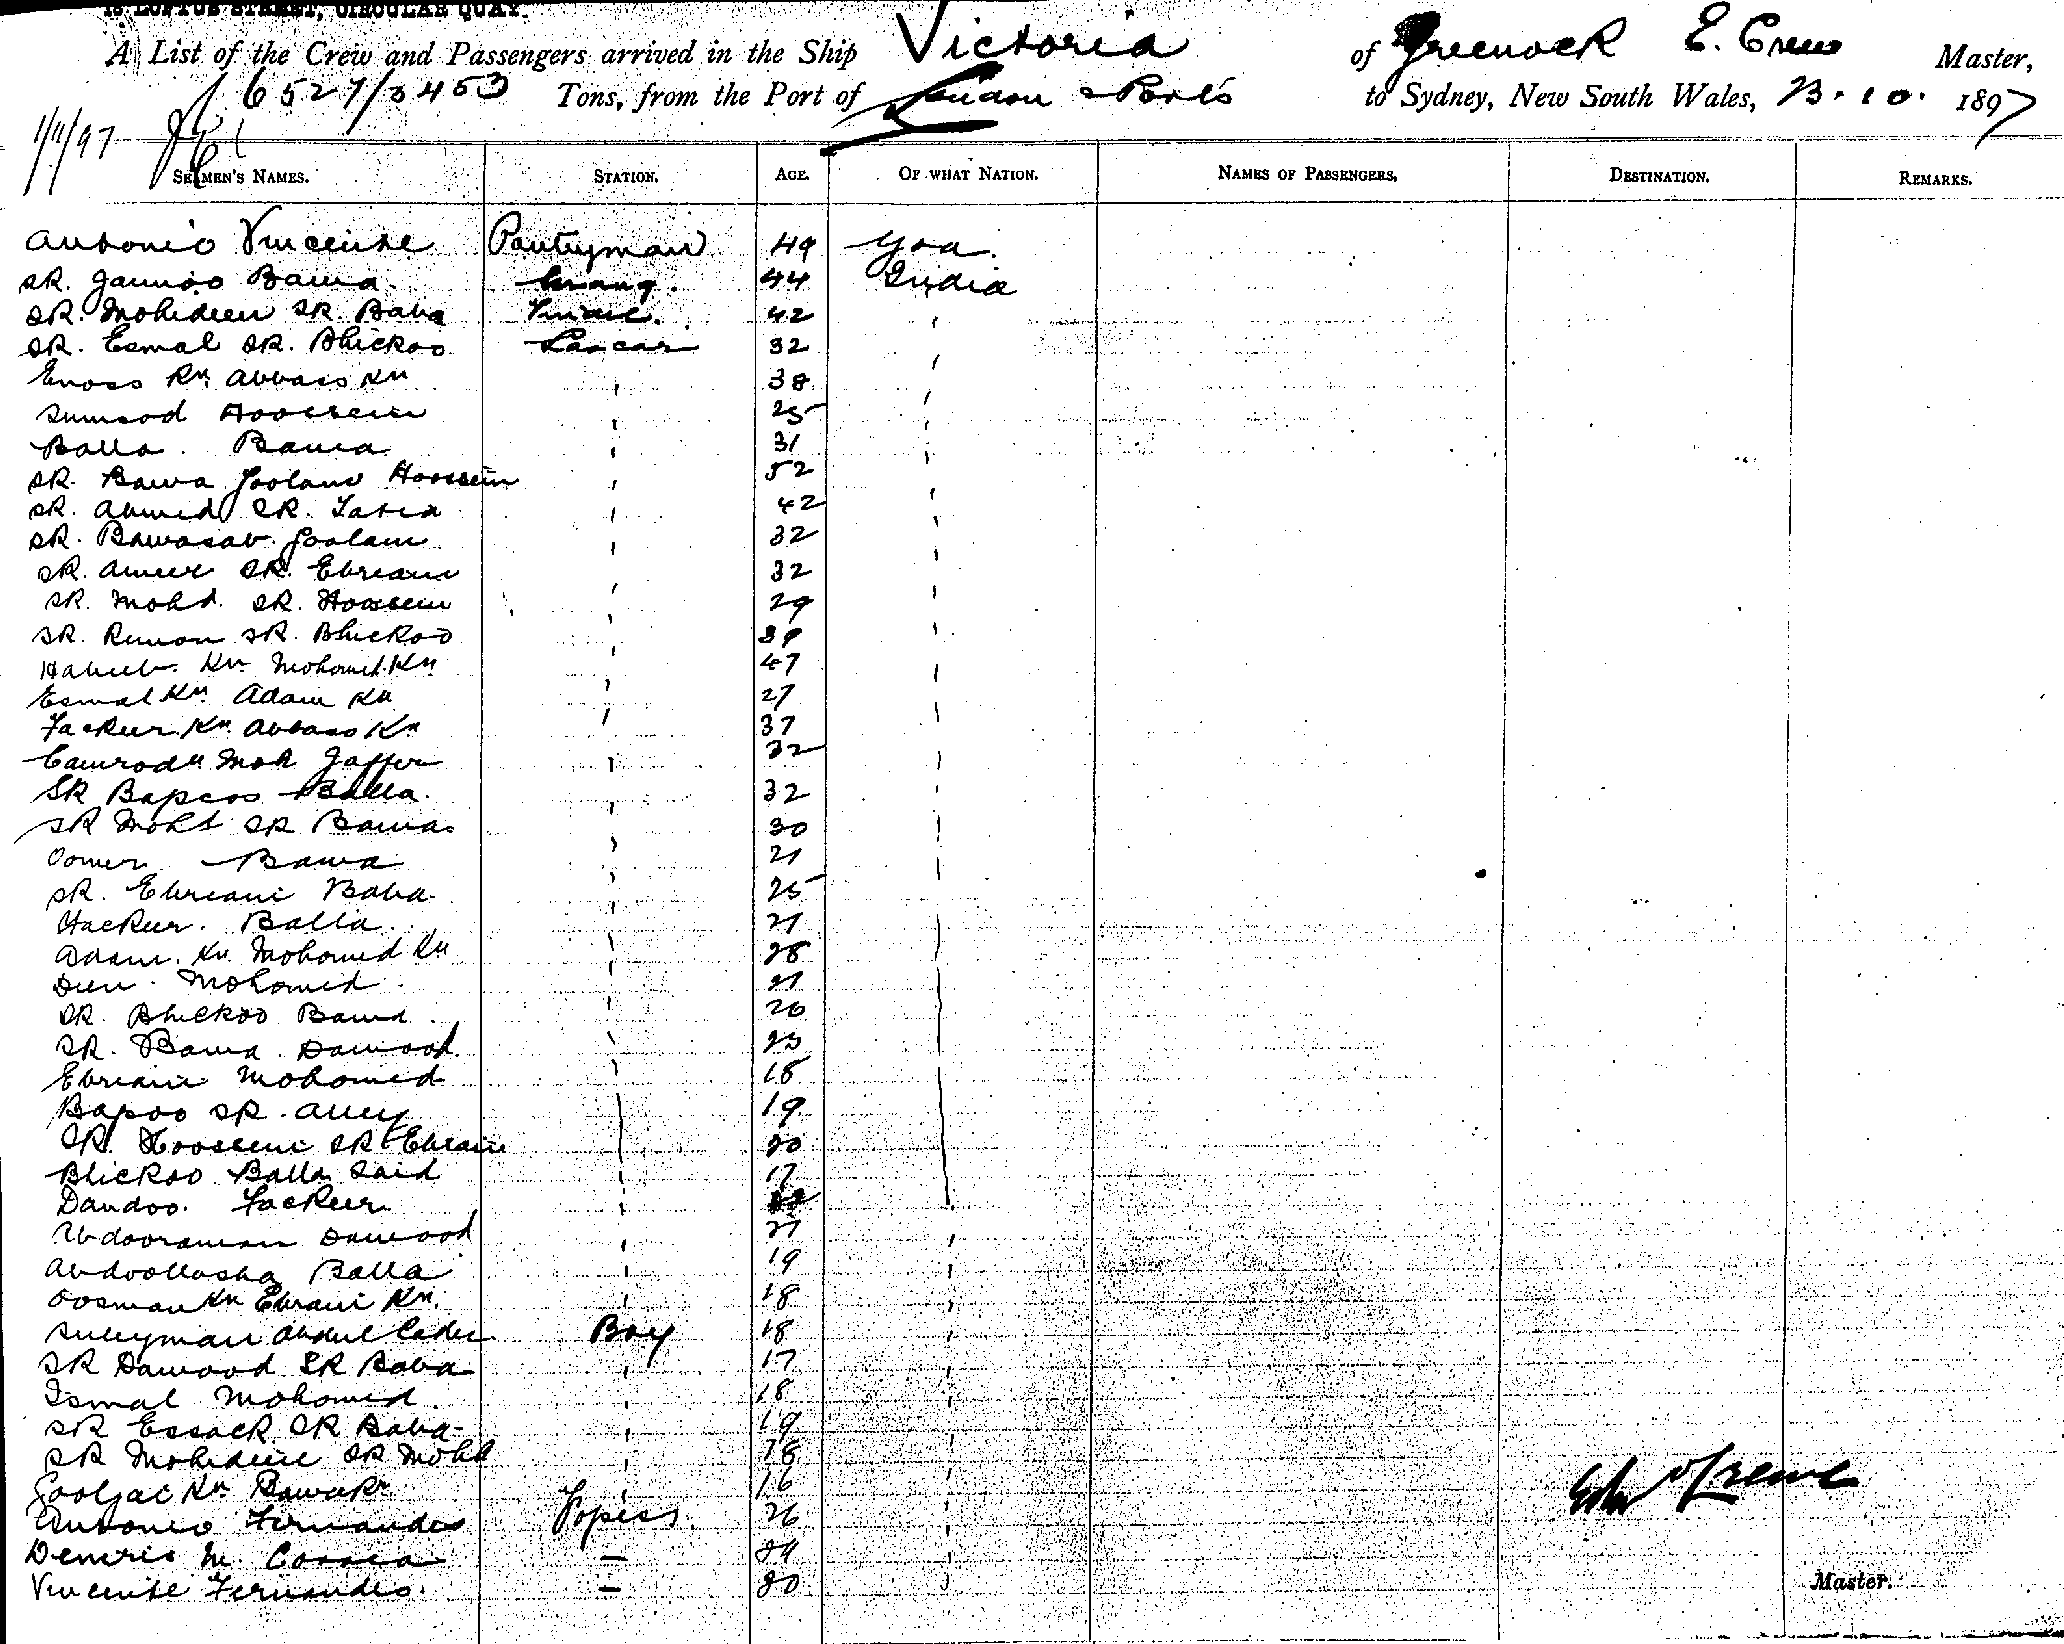 15 LOFTUS STREET, CIRCULAR QUAY.
A List of the Crew and Passengers arrived in the Ship Victoria of Greenock E. Crewe Master,
6527/3453 Tons, from the Port of London & Ports to Sydney, New South Wales, 23.10.1897
1/11/97
SEAMEN'S NAMES. STATION. AGE. OF WHAT NATION. NAMES OF PASSENGERS. DESTINATION. REMARKS.
Antonio Vincente Pantryman 49 Goa
SK. Bawa 44 India
SK. Mohideen SK. Baba 42 "
SK. Esmal SK. Bhickoo Lascar 32 "
Enoss Kn Abbass Kn " 38 "
Hoossein " 25 "
Balla Bawa " 31 "
SK. Bawa Goolam Hoossein " 52 "
SK. Ahmed SK. " 42 "
SK. Bawasab Goolam " 32 "
SK. Ameer SK. Ebream " 32 "
SK. Mohd. SK. Hoossein " 29 "
SK. Rimon SK. Bhickoo " 39 "
Habeeb Kn Mohomed Kn " 47 "
Esmal Kn Adam Kn " 27 "
Fackeer Kn Abbass Kn " 37 "
Moh Jaffer " 32 "
SK Bapoo Balla " 32 "
SK Moht SK Bawa " 30 "
Oomer Bawa " 21 "
SK. Ebream Baba " 25 "
Hackeer Balla " 21 "
Adam Kn Mohomed Kn " 28 "
Deen Mohomed " 21 "
SK. Bhickoo Bawa " 26 "
SK. Bawa Dawood " 23 "
Ebream Mohomed " 18 "
Bapoo SK. Alley " 19 "
SK. Hoossein SK Ebraim " 20 "
Bhickoo Balla Said " 17 "
Dandoo Fackeer "
Abdooraman Dawood " 21 "
Abdoollasha Balla " 19 "
Oosman Kn Ebram Kn " 18 "
Suleyman Abdul Cader Boy 18 "
SK Dawood SK Baba " 17 "
Ismal Mohomed " 18 "
SK Essack SK Baba " 19 "
SK Mohideen SK Mohd " 18 "
Kn " 16 "
Antonio Fernandes Topass 26 "
M. Correa — 24 "
Vincente Fernandes — 20 "
Edw Crewe
Master.